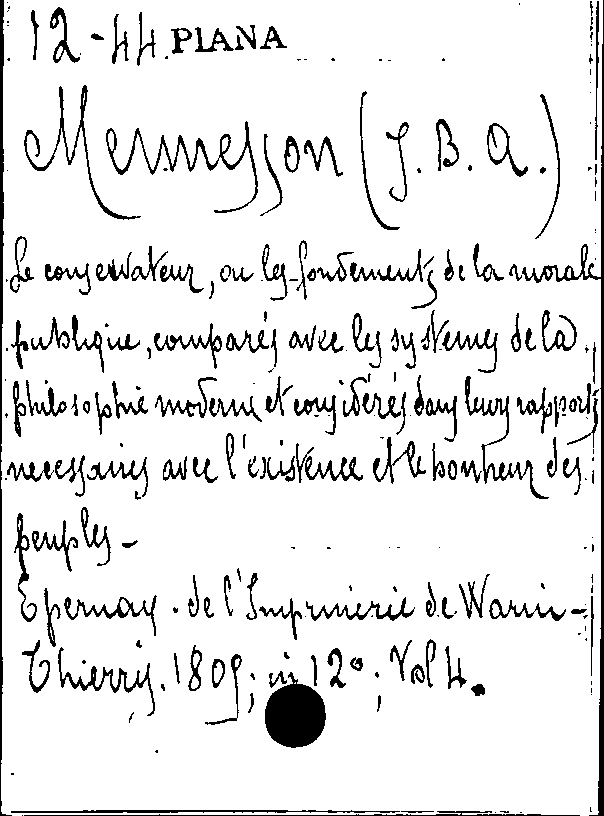 12-44 PIANA
Mermesson (J. B. A.)
Le conservateur, ou les fondements de la morale
publique, comparés avec les systemes de la
philosophie moderne et considérés dans leurs rapports
necessaires avec l'existence et le bonheur des
peuples -
Epernay. de l'Imprimerie de Warin-
Thierry. 1809; in 12°; Vol 4.